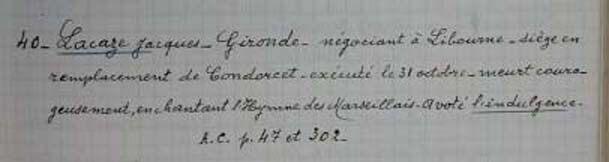 40_ Lacaze Jacques_ Gironde_ négociant à Libourne_ siège en
remplacement de Condorcet_ exécuté le 31 octobre_ meurt coura-
geusement, en chantant l'Hymne des Marseillais_ a voté l'indulgence.
A.C. p. 47 et 302_